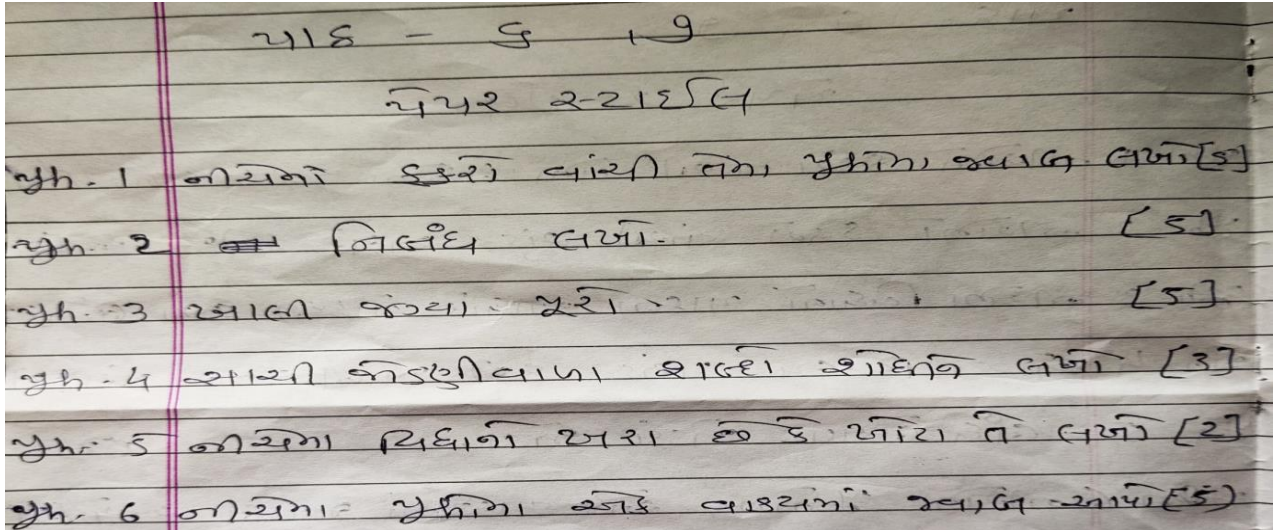 પાઠ - ૬ , ૭
પેપર સ્ટાઈલ
પ્રશ્ન. 1 નીચેનો ફકરો વાંચી તેના પ્રશ્નોના જવાબ લખો [5]
પ્રશ્ન. 2 નિબંધ લખો. [5]
પ્રશ્ન. 3 ખાલી જગ્યા પૂરો. [5]
પ્રશ્ન. 4 સાચી જોડણીવાળા શબ્દો શોધીને લખો [3]
પ્રશ્ન. 5 નીચેના વિધાનો ખરા છે કે ખોટા તે લખો [2]
પ્રશ્ન. 6 નીચેના પ્રશ્નોના એક વાક્યમાં જવાબ આપો [5]